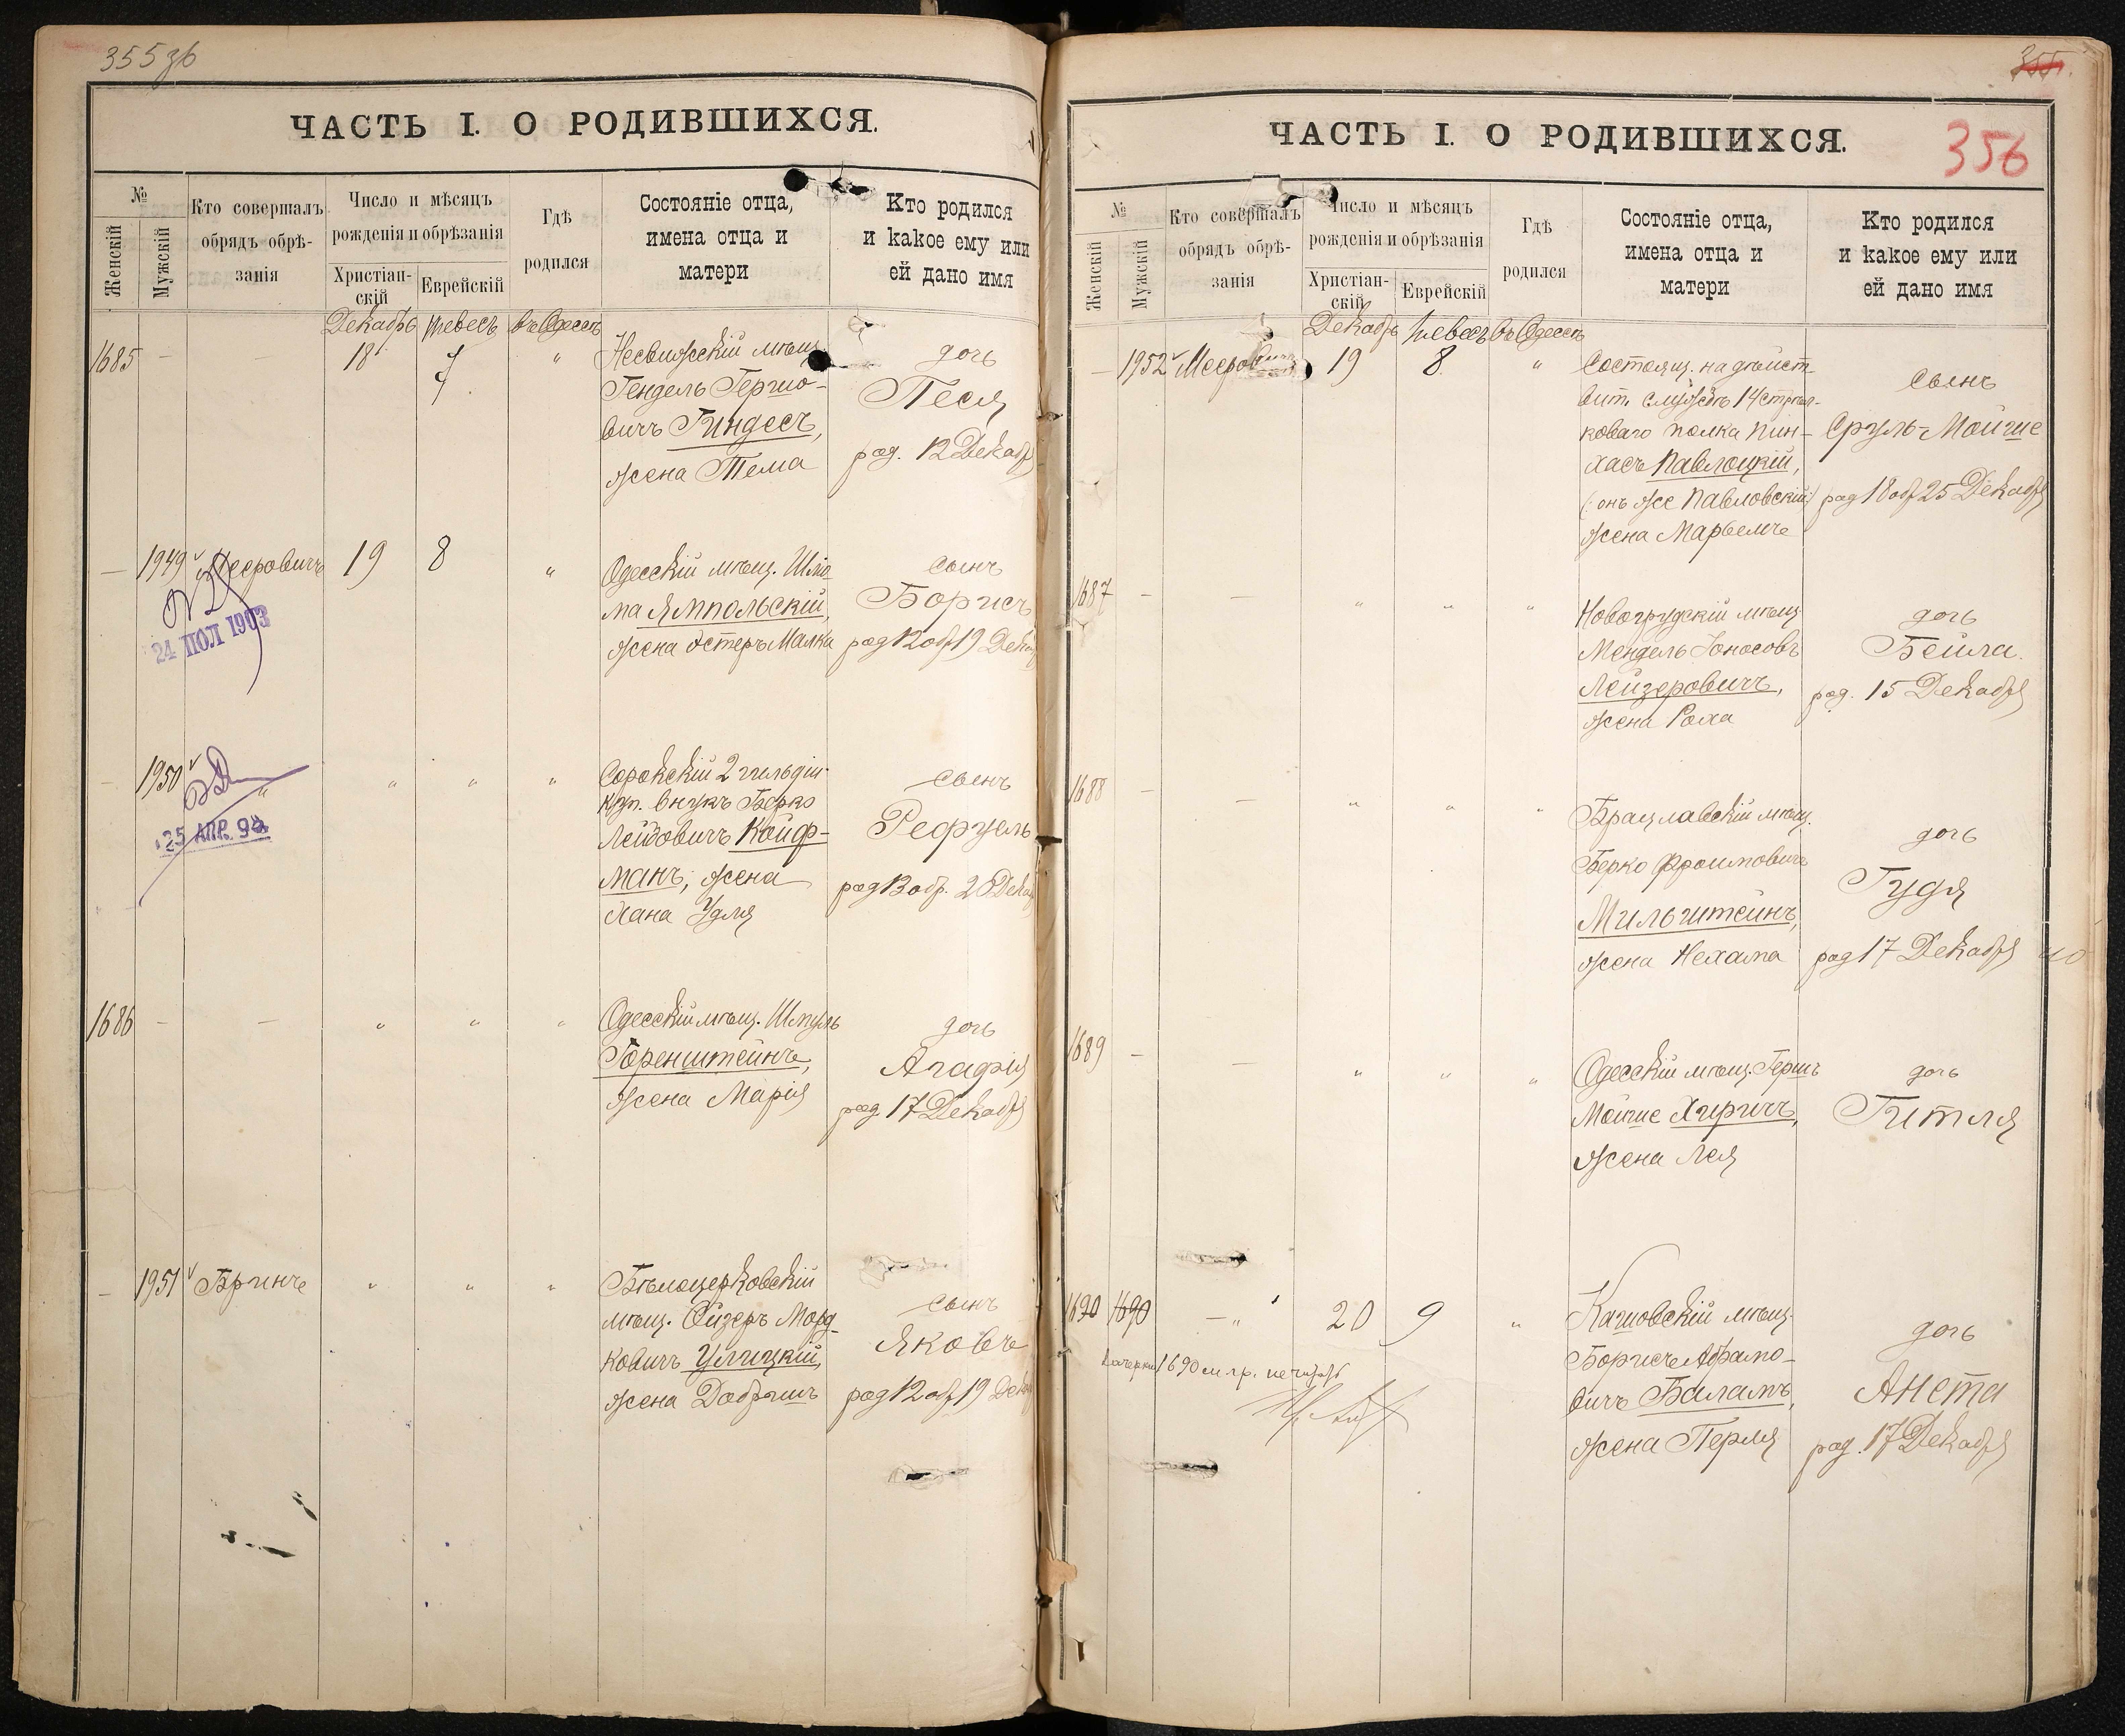 355зб
ЧАСТЬ I. О РОДИВШИХСЯ.
№
Женскій
Мужскій
Кто совершалъ
обрядъ обрѣ-
занія
Число и мѣсяцъ
рожденія и обрѣзанія
Христіан-
скій
Еврейскій
Гдѣ
родился
Состояніе отца,
имена отца и
матери
Кто родился
и какое ему или
ей дано имя
Декабрь Тевесъ въ Одессѣ
1685 — — 18 7 "
Несвижскій мѣщ.
Гендель Гершо-
вичъ Гиндесъ,
жена Тема
дочь
Песя
род. 12 Декабр
— 1949 Мееровичъ 19 8 "
24 ПОЛ 1903
Одесскій мѣщ. Шлю-
ма Ямпольскій,
жена Эстеръ Малка
сынъ
Борисъ
род 12 обр 19 Дека
— 1950 " " " "
25 АПР. 94
Сорокскій 2 гильдіи
куп. внукъ Берко
Лейбовичъ Койф-
манъ, жена
Хана Удля
сынъ
Рефуель
род 13 обр. 20 Дека
1686 — — " " "
Одесскій мѣщ. Шмуль
Горенштейнъ,
жена Марія
дочь
Агафія
род. 17 Декабря
— 1951 Бринъ " " "
Бѣлоцерковскій
мѣщ. Ойзеръ Морд-
ковичъ Улицкій,
жена Добришъ
сынъ
Яковъ
род 12 обр 19 Дека
355.
356
ЧАСТЬ I. О РОДИВШИХСЯ.
№
Женскій
Мужскій
Кто совершалъ
обрядъ обрѣ-
занія
Число и мѣсяцъ
рожденія и обрѣзанія
Христіан-
скій
Еврейскій
Гдѣ
родился
Состояніе отца,
имена отца и
матери
Кто родился
и какое ему или
ей дано имя
Декабрь Тевесъ въ Одессѣ
— 1952 Мееровичъ 19 8 "
Состоящ. на дѣйст-
вит. службѣ 14 стрѣл-
коваго полка Пин-
хасъ Павлоцкій,
(онъ же Павловскій)
жена Марьемъ
сынъ
Сруль-Мойше
род 18 обр 25 Декабря
1687 — — " " "
Новогрудскій мѣщ.
Мендель Іоносовъ
Лейзеровичъ,
жена Роха
дочь
Бейла.
род. 15 Декабря
1688 — — " " "
Брацлавскій мѣщ.
Берко Фроимовичъ
Мильштейнъ,
жена Нехама
дочь
Гудя
род 17 Декабря
1689 — — " " "
Одесскій мѣщ. Гершъ
Мойше Хиричъ,
жена Лея
дочь
Гитля
1690 1690 — " 20 9 "
1690
Кашовскій мѣщ.
Борисъ Абрамо-
вичъ Баламъ,
жена Перля
дочь
Анета
род. 17 Декабря